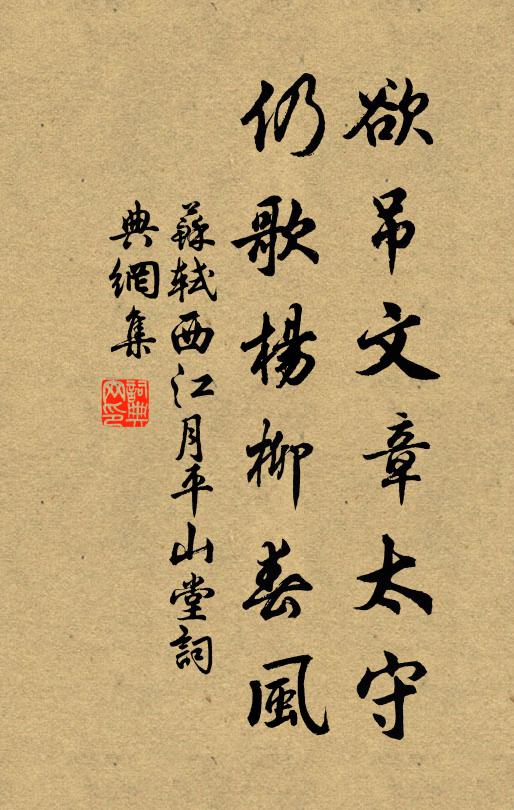 欲吊文章太守
仍歌楊柳春風
蘇軾西江月平山堂詞
典網集
詞典網印